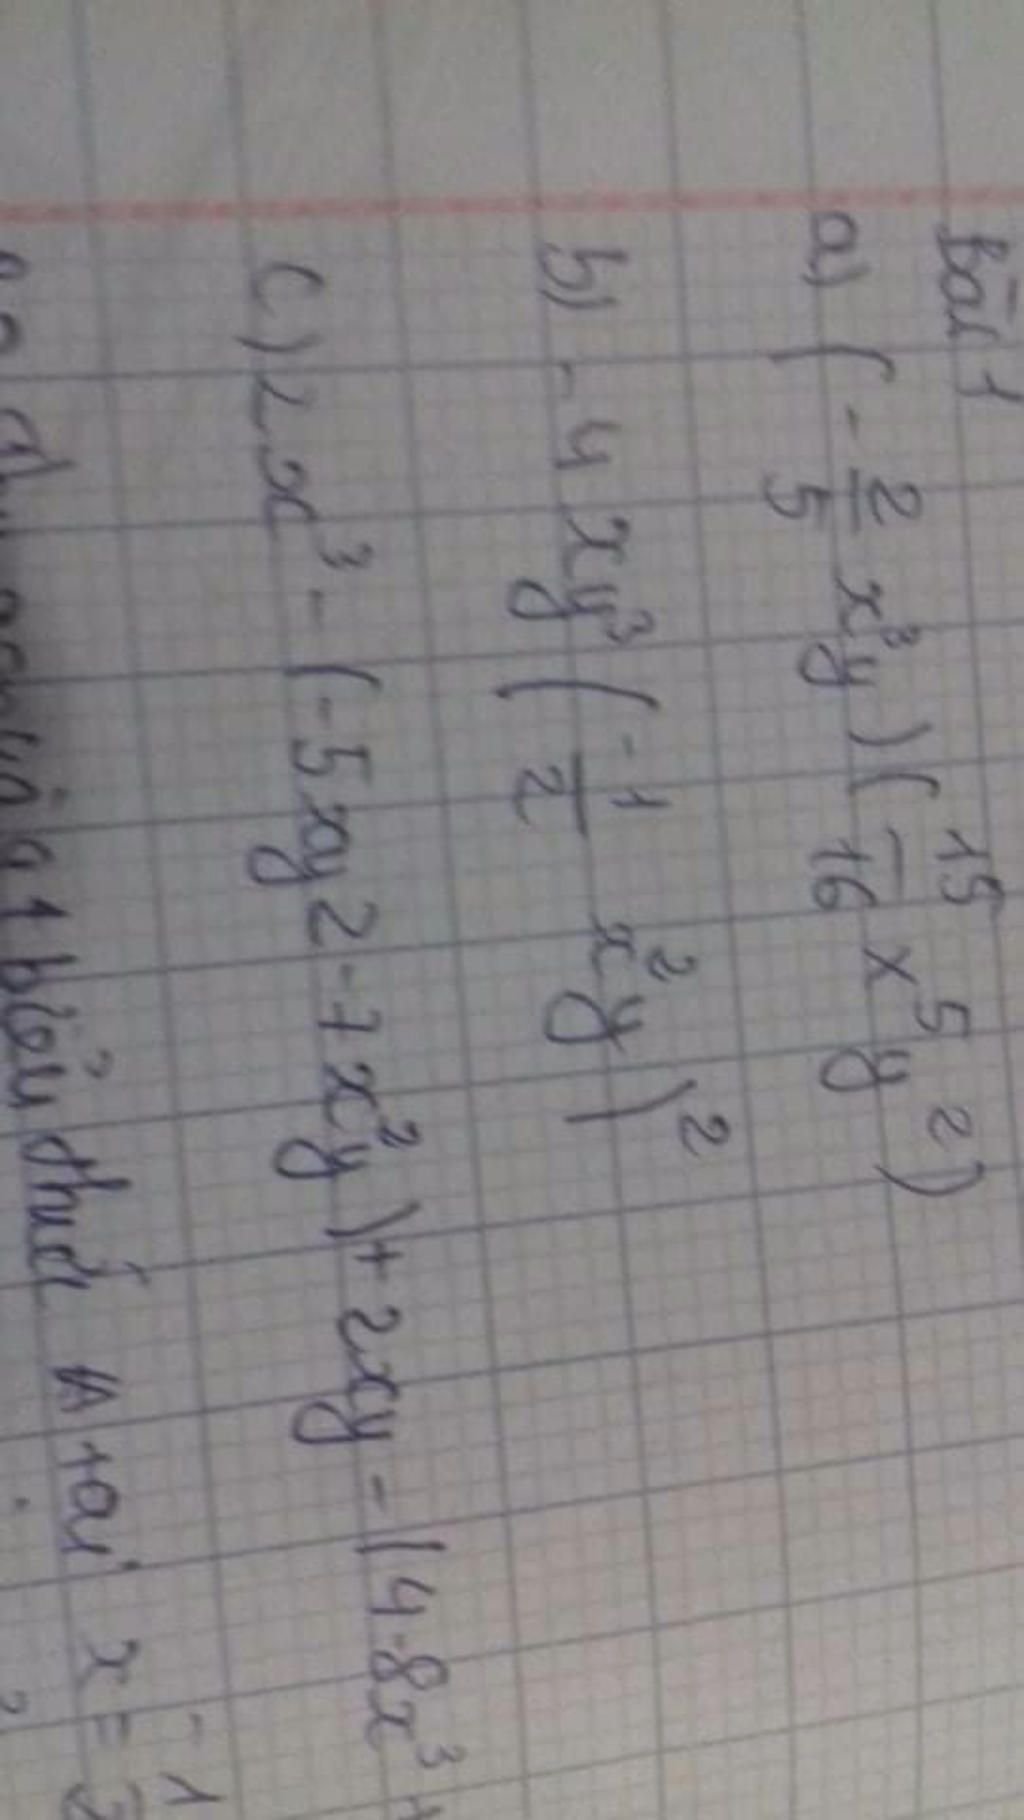 Bài 1
a) (- 2/5 x³y)(15/16 x⁵y²)
b) -4xy³(-1/2 x²y)²
c) 2x³ - (-5xy2 - 7x²y) + 2xy - (4.8x³ +
thức A tại x = -1/2